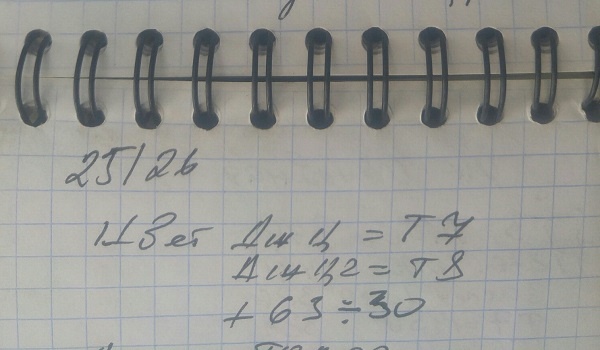 25/26
Цвет Дж Ц = Т7
Дж Ц2 = Т8
+ 63 ÷ 30